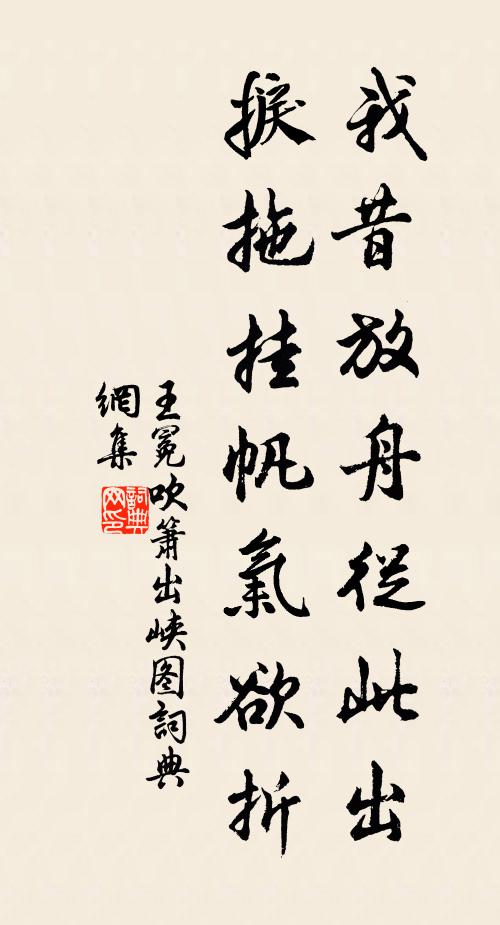 我昔放舟從此出
捩拖挂帆氣欲折
王冕吹簫出峽图詞典
網集
詞典
网印